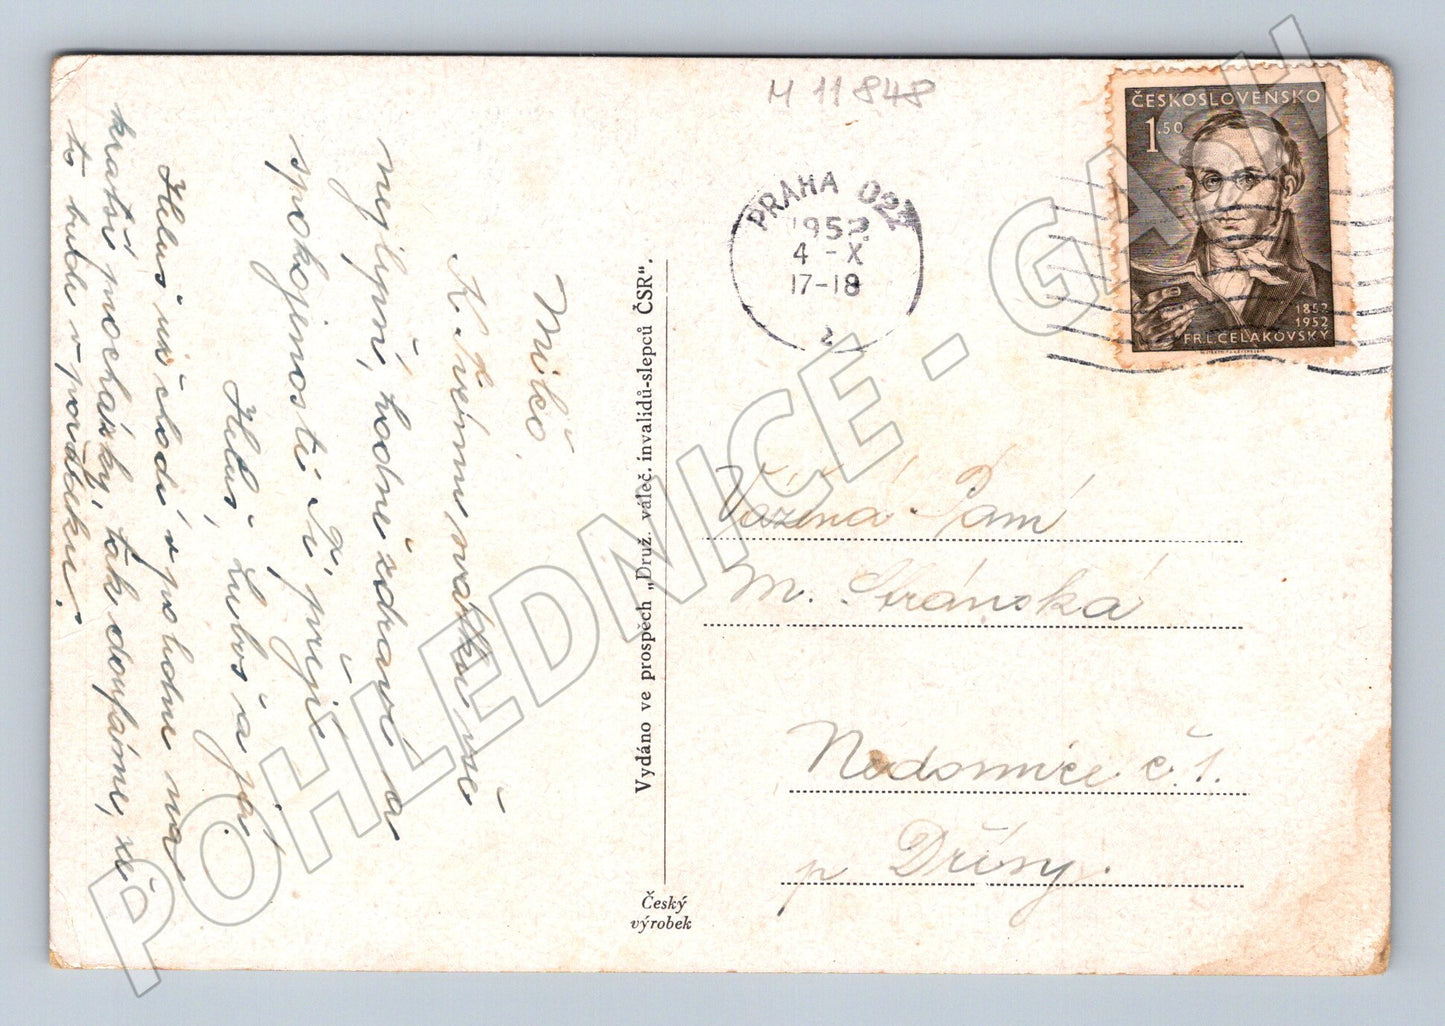 M 11848
ČESKOSLOVENSKO
1.50
1852
1952
FR.L.ČELAKOVSKÝ
PRAHA 022
1952
4 - X
17-18
Milko,
K Tvému svátku vše
nejlepší, hodně zdraví a
spokojenosti Ti přeje
Heluš, Luboš a
Heluš už chodí v poledne na
kratší procházky, tak doufáme, že
to bude v pořádku.
Vydáno ve prospěch „Druž. váleč. invalidů-slepců ČSR".
Český
výrobek
Vážená Paní
M. Stránská
Nedomice č. 1.
p Dřísy.
POHLEDNICE - GASH